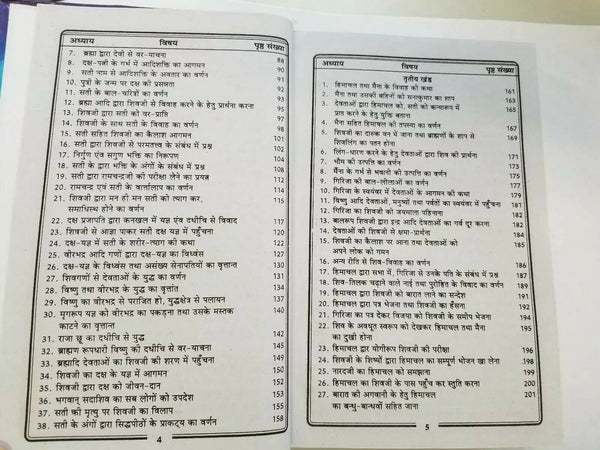 अध्याय विषय पृष्ठ संख्या
7. ब्रह्मा द्वारा देवी से वर-याचना 88
8. दक्ष-पत्नी के गर्भ में आदिशक्ति का आगमन 90
9. सती नाम से आदिशक्ति के अवतार का वर्णन 91
10. पुत्रों के जन्म पर दक्ष की प्रसन्नता 92
11. सती के बाल-चरित्रों का वर्णन 94
12. ब्रह्मा आदि द्वारा शिवजी से विवाह करने के हेतु प्रार्थना करना 95
13. शिवजी द्वारा सती को वर-प्राप्ति 97
14. शिवजी के साथ सती के विवाह का वर्णन 98
15. सती सहित शिवजी का कैलाश आगमन 101
16. सती द्वारा शिवजी से परमतत्व के संबंध में प्रश्न 102
17. निर्गुण एवं सगुण भक्ति का निरूपण 104
18. सती के द्वारा भक्ति के अंगों के संबंध में प्रश्न 108
19. सती द्वारा रामचन्द्रजी की परीक्षा लेने का प्रयत्न 110
20. रामचन्द्र एवं सती के वार्त्तालाप का वर्णन 112
21. शिवजी द्वारा मन ही मन सती को त्याग कर,
समाधिस्थ होने का वर्णन 114
22. दक्ष प्रजापति द्वारा कनखल में यज्ञ एंव दधीचि से विवाद 117
23. शिवजी से आज्ञा पाकर सती दक्ष यज्ञ में पहुँचना 120
24. दक्ष-यज्ञ में सती के शरीर-त्याग की कथा 122
25. वीरभद्र आदि गणों द्वारा दक्ष-यज्ञ का विध्वंस 127
26. दक्ष-यज्ञ के विध्वंस तथा असंख्य सेनापतियों का वृत्तान्त 130
27. शिवगणों से देवताओं के युद्ध का वर्णन 131
28. विष्णु तथा वीरभद्र के युद्ध का वृतांत 134
29. विष्णु का वीरभद्र से पराजित हो, युद्धक्षेत्र से पलायन 137
30. मृगरूप यज्ञ को वीरभद्र का पकड़ना तथा उसके मस्तक
काटने का वृत्तान्त
31. राजा छू का दधीचि से युद्ध 142
32. ब्राह्मण रूपधारी विष्णु की दधीचि से वर-याचना 145
33. ब्रह्मादि देवताओं का शिवजी की शरण में पहुँचना 149
34. शिवजी का दक्ष के यज्ञ में आगमन 150
35. शिवजी द्वारा दक्ष को जीवन-दान 151
36. भगवान् सदाशिव का सब लोगों को उपदेश 153
37. सती की मृत्यु पर शिवजी का विलाप 155
38. सती के अंगों द्वारा सिद्धपीठों के प्राकट्य का वर्णन 158
4
अध्याय विषय पृष्ठ संख्या
तृतीय खंड
1. हिमाचल तथा मैना के विवाह की कथा 161
2. मैना तथा उसकी बहिनों को सनत्कुमार का शाप 163
3. देवताओं द्वारा हिमाचल को, सती को कन्यारूप में 165
प्राप्त करने के हेतु युक्ति बताना
4. मैना सहित हिमाचल की तपस्या का वर्णन 167
5. शिवजी का दारुक वन में जाना तथा ब्राह्मणों के शाप से 169
शिवलिंग का पतन होना
6. लिंग-धारण करने के हेतु देवताओं द्वारा शिव की प्रार्थना 171
7. भौम की उत्पत्ति का वर्णन 173
8. मैंना के गर्भ से भवानी की उत्पत्ति का वर्णन 175
9. गिरिजा की बाल-लीलाओं का वर्णन 177
10. गिरिजा के स्वयंवर में देवताओं के आगमन की कथा 179
11. विष्णु आदि देवताओं, मनुष्यों तथा पर्वतों का स्वयंवर में पहुँचना 181
12. गिरिजा का शिवजी को जयमाला पहिनाना 181
13. बालरूप शिवजी द्वारा इन्द्र आदि देवताओं का गर्व दूर करना 182
14. देवताओं की शिवजी से क्षमा-प्रार्थना 184
15. शिवजी का कैलाश पर आना तथा देवताओं को 185
अपने लोक को गमन
16. अन्य रीति से शिव-विवाह का वर्णन 186
17. हिमाचल द्वारा सभा में, गिरिजा से उनके पति के संबंध में प्रश्न 187
18. शिव-तिलक चढ़ाने वाले नाई तथा पुरोहित के विवाद का वर्णन 189
19. हिमाचल द्वारा शिवजी को बारात लाने का सन्देश 191
20. हिमाचल द्वारा पत्र भेजना तथा शिवजी का हँसना 191
21. गिरिजा का पत्र देकर विजया को शिवजी के समीप भेजना 194
22. शिव के अवधूत स्वरूप को देखकर हिमाचल तथा मैना 195
का दुखी होना
23. हिमाचल द्वारा योगीरूप शिवजी की परीक्षा 196
24. शिवजी के शिष्यों द्वारा हिमाचल का सम्पूर्ण भोजन खा लेना 198
25. नारदजी का हिमाचल को समझाना 199
26. हिमाचल का शिवजी के पास पहुँच कर स्तुति करना 200
27. बारात की अगवानी के हेतु हिमाचल 201
का बन्धु-बान्धवों सहित जाना
5